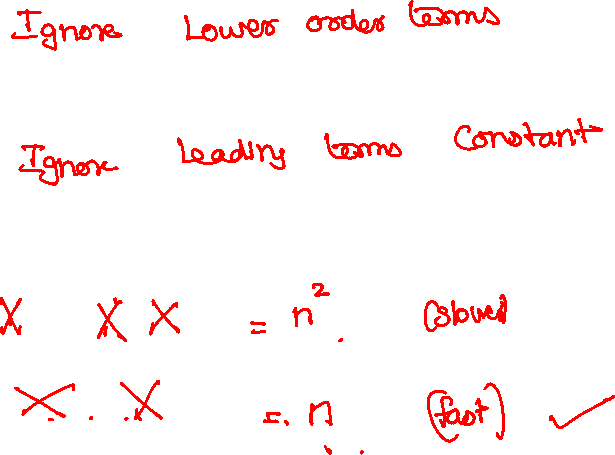 Ignore Lower order terms
Ignore leading terms constant
X X X = n². (slower)
X . X =. n (fast) ✓